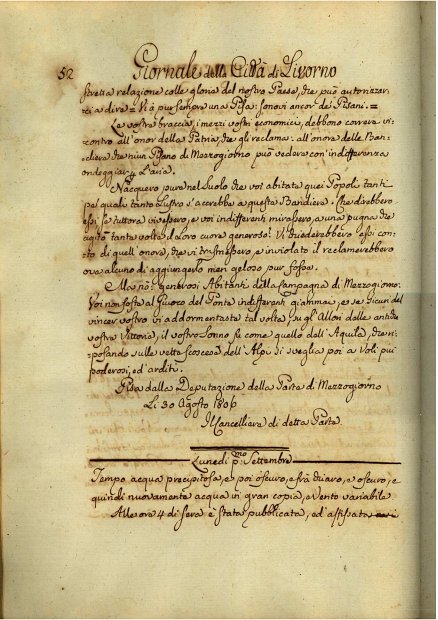 52 Giornale della Città di Livorno
stretta relazione colle gloria del nostro Paese, che può autorizzar-
ci a dire = Vi à pur sempre una Pisa: sonovi ancor de' Pisani. =
Le vostre braccia, i mezzi vostri economici, debbono correre in-
contro all'onor della Patria, che gli reclama: all'onore delle Ban-
diere che niun Pisano di Mezzogiorno può vedere con indifferenza
ondeggiar per l'aria.
Nacquero pure nel suolo che voi abitate quei Popoli tanti
pe' quali tanto lustro s'accrebbe a questa Bandiera. Che direbbero
essi, se tuttora vivessero, e voi indifferenti mirassero, a una pugna che
agitò tante volte il Loro cuore generoso? Vi chiederebbero essi con-
to di quell'onore, che vi trasmessero, e inviolato il reclamerebbero
ove alcuno di aggiungerlo men geloso pur fosse.
Ma nò: generosi Abitanti della Campagna di Mezzogiorno:
Voi non foste al Giuoco del Ponte indifferenti giammai, e se sicuri del
vincer vostro vi addormentaste tal volta su gl'Allori delle antiche
vostre Vittorie, il vostro sonno fu come quello dell'Aquila, che ri-
posando sulle vette scoscese dell'Alpi si sveglia poi a Voli più
poderosi, ed arditi.
Pisa dalla Deputazione della Parte di Mezzogiorno
Li 30 Agosto 1806
Il Cancelliere di detta Parte.
Lunedì p:mo Settembre
Tempo acqua precipitosa, e poi oscuro, e frà chiaro, e oscuro, e
quindi nuovamente acqua in gran copia, e Vento variabile
Alle ore 4 di sera è stata pubblicata, ed affissata